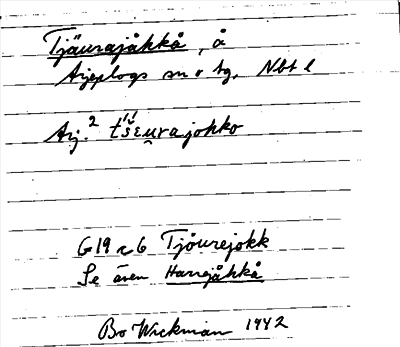 Tjäurajåkkå, å
Arjeplogs sn o tg, Nbt l
Arj.² t́šɛu̯rajohko
G19 c6 Tjöurejokk
Se även Harrejåkkå
Bo Wickman 1942